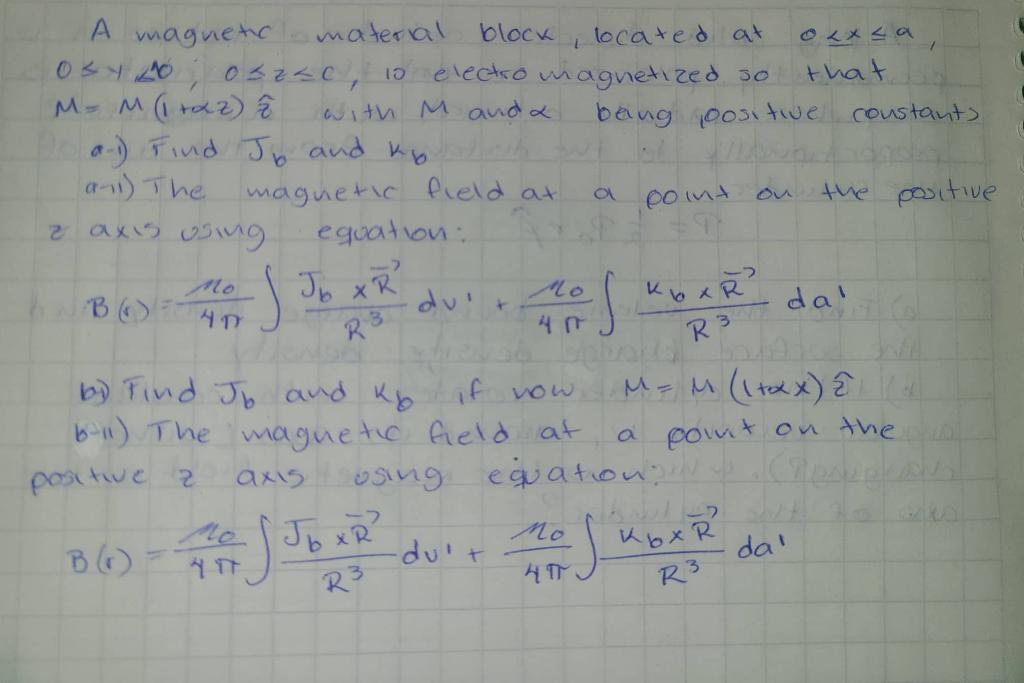 A magnetic material block, located at 0≤x≤a,
0≤y≤b, 0≤z≤c, is electro magnetized so that
M = M(1+αz) ẑ with M and α being positive constants
a-i) Find J_b and K_b
a-ii) The magnetic field at a point on the positive
z axis using equation:
B(r) = μ0/4π ∫ J_b × R⃗ / R^3 dv' + μ0/4π ∫ K_b × R⃗ / R^3 da'
b-) Find J_b and K_b if now M = M(1+αx) ẑ
b-ii) The magnetic field at a point on the
positive z axis using equation:
B(r) = μ0/4π ∫ J_b × R⃗ / R^3 dv' + μ0/4π ∫ K_b × R⃗ / R^3 da'